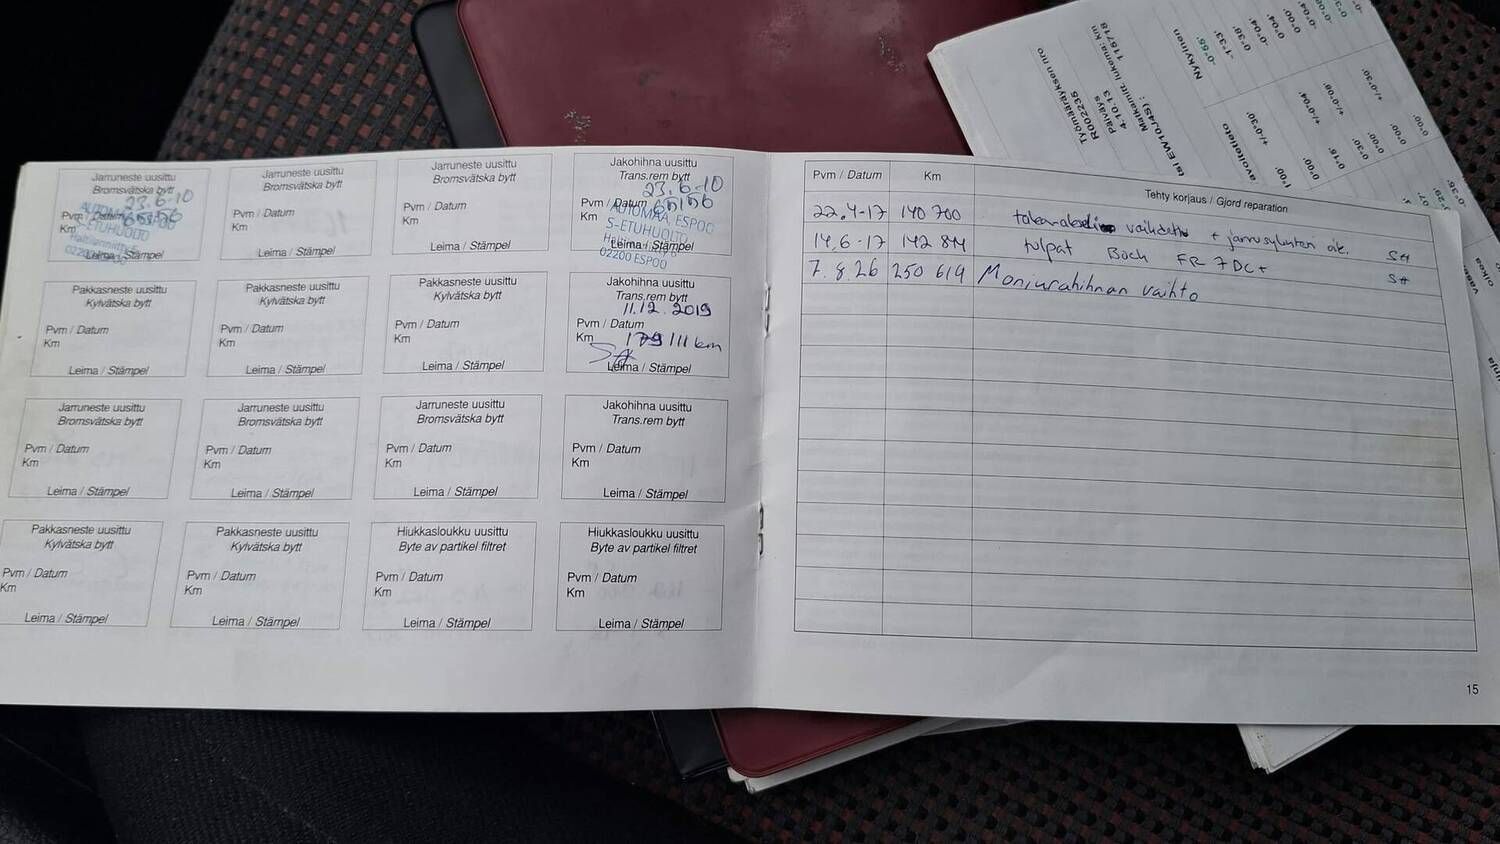 Jarruneste uusittu
Bromsvätska bytt
23.6-10
Pvm / Datum 65156
Km
S-ETUHUOLTO
02200 ESPOO
Leima / Stämpel
Jarruneste uusittu
Bromsvätska bytt
Pvm / Datum
Km
Leima / Stämpel
Jarruneste uusittu
Bromsvätska bytt
Pvm / Datum
Km
Leima / Stämpel
Jakohihna uusittu
Trans.rem bytt
23.6-10
Pvm / Datum 65156
Km
AUTOMAA ESPOO
S-ETUHUOLTO
02200 ESPOO
Leima / Stämpel
Pakkasneste uusittu
Kylvätska bytt
Pvm / Datum
Km
Leima / Stämpel
Pakkasneste uusittu
Kylvätska bytt
Pvm / Datum
Km
Leima / Stämpel
Pakkasneste uusittu
Kylvätska bytt
Pvm / Datum
Km
Leima / Stämpel
Jakohihna uusittu
Trans.rem bytt
11.12.2019
Pvm / Datum
Km 179 111 km
SH
Leima / Stämpel
Jarruneste uusittu
Bromsvätska bytt
Pvm / Datum
Km
Leima / Stämpel
Jarruneste uusittu
Bromsvätska bytt
Pvm / Datum
Km
Leima / Stämpel
Jarruneste uusittu
Bromsvätska bytt
Pvm / Datum
Km
Leima / Stämpel
Jakohihna uusittu
Trans.rem bytt
Pvm / Datum
Km
Leima / Stämpel
Pakkasneste uusittu
Kylvätska bytt
Pvm / Datum
Km
Leima / Stämpel
Pakkasneste uusittu
Kylvätska bytt
Pvm / Datum
Km
Leima / Stämpel
Hiukkasloukku uusittu
Byte av partikel filtret
Pvm / Datum
Km
Leima / Stämpel
Hiukkasloukku uusittu
Byte av partikel filtret
Pvm / Datum
Km
Leima / Stämpel
Pvm / Datum Km Tehty korjaus / Gjord reparation
22.4-17 140 700 vaihdettu + jarrusylinteri oik. SH
14.6-17 142 811 tulpat Bosch FR 7 DC+ SH
7.8.26 250 619 Moniurahihnan vaihto
15
Työmääräyksen nro
R002236
Päiväys
4.10.13
Matkamitt. lukema: km
118718
EW10J4S) :
Nykyinen
-0°55'
-1°33'
0°38'
-0°04'
0°04'
0°00'
avoitetieto
+/-0°30'
+/-0°04'
+/-0°08'
+/-0°30'
1°00'
0°00'
0°15'
0°30'
0°00'
0°00'
0°00'